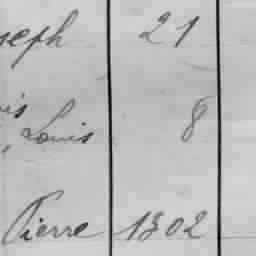 seph 21
is
, Louis 8
Pierre 1302